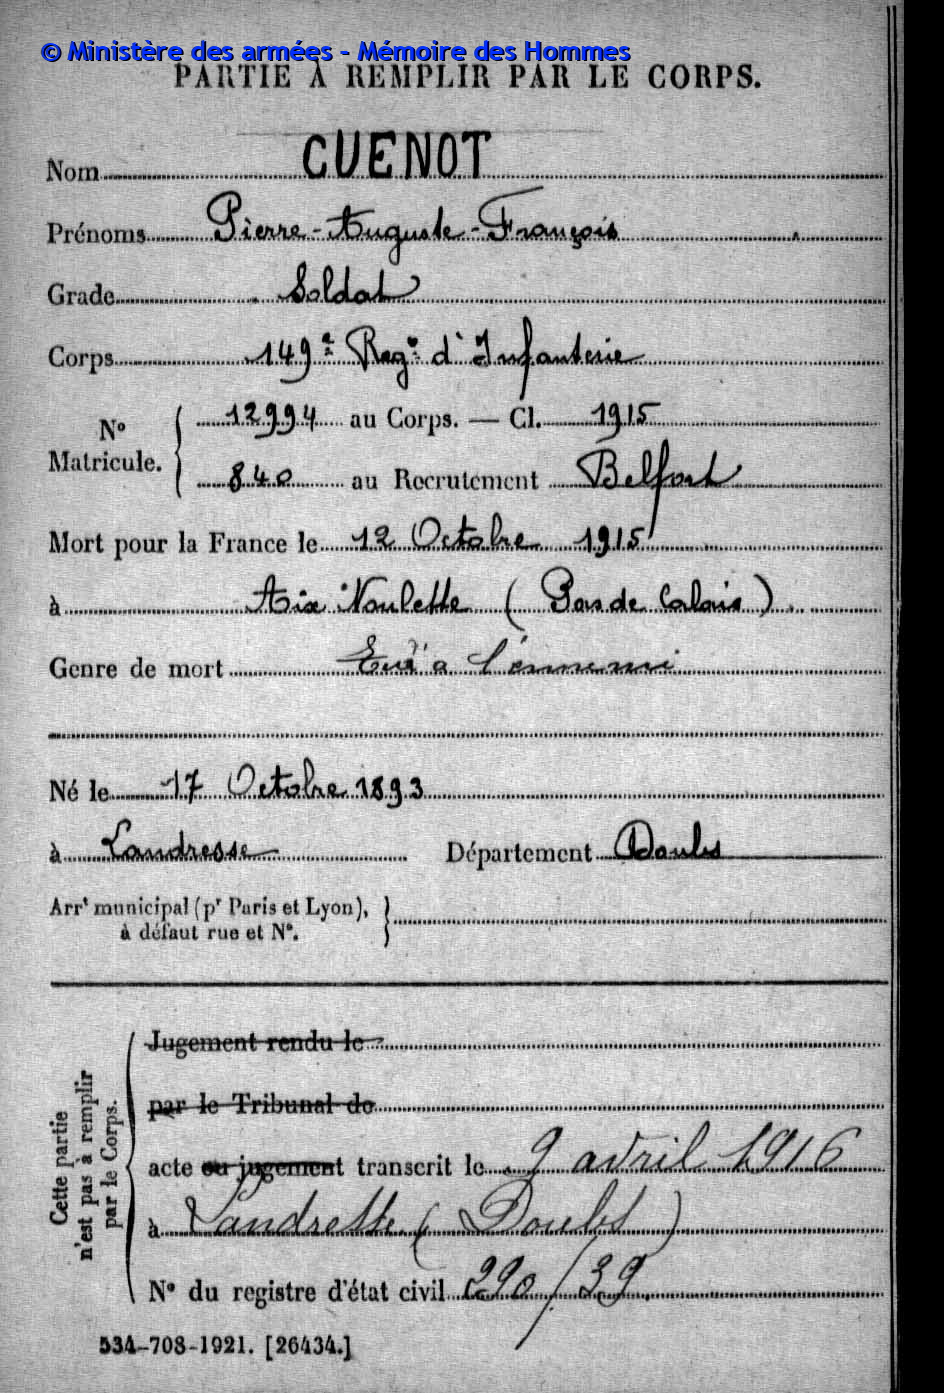 © Ministère des armées - Mémoire des Hommes
PARTIE À REMPLIR PAR LE CORPS.
Nom CUENOT
Prénoms Pierre-Auguste-François
Grade Soldat
Corps 149e Regt d'Infanterie
N° Matricule. 12994 au Corps. — Cl. 1915
840 au Recrutement Belfort
Mort pour la France le 12 Octobre 1915
à Aix Noulette (Pas de Calais)
Genre de mort Tué à l'ennemi
Né le 17 Octobre 1893
à Landresse Département Doubs
Arrt municipal (pr Paris et Lyon),
à défaut rue et N°.
Cette partie
n'est pas à remplir
par le Corps.
Jugement rendu le
par le Tribunal de
acte ou jugement transcrit le 9 avril 1916
à Landresse (Doubs)
N° du registre d'état civil 290/39
534-708-1921. [26434.]